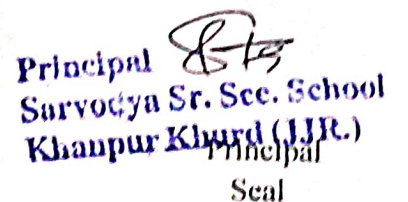 Principal
Sarvodya Sr. Sec. School
Khanpur Khurd (JJR.)
Principal
Seal